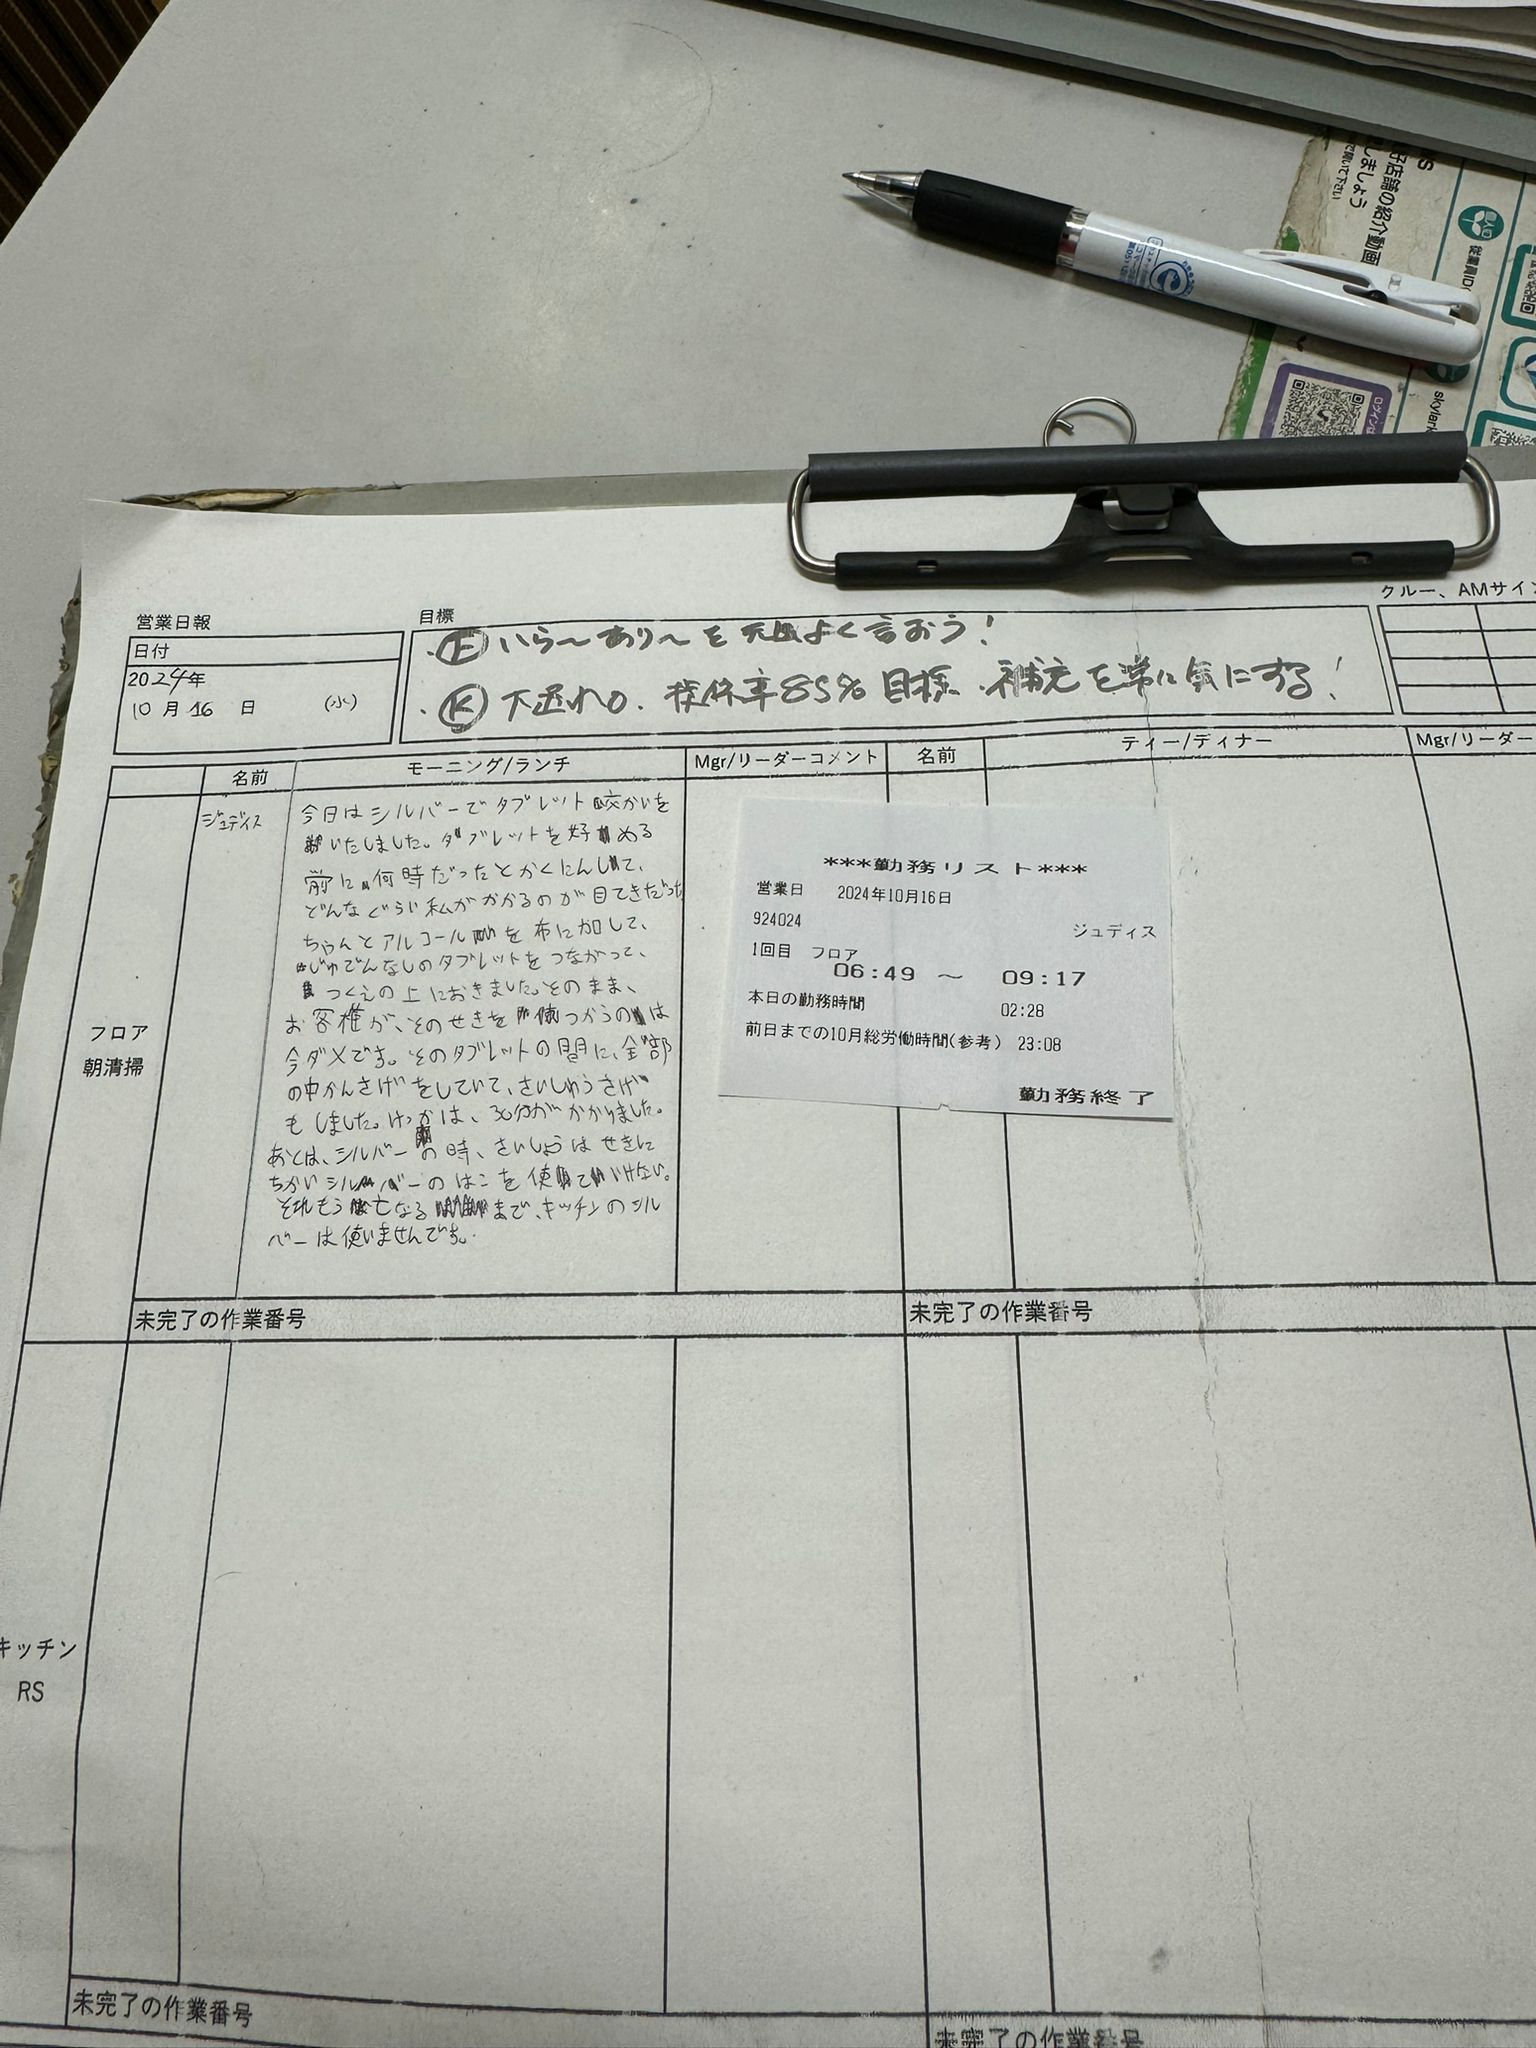 営業日報
目標
クルー、AMサイン
日付
2024年
10月16日 (水)
・Ⓕ いら〜あり〜を元気よく言おう!
・Ⓚ 大遅れ0. 提供率85%目標 補充を常に気にする!
名前
モーニング/ランチ
Mgr/リーダーコメント
名前
ティー/ディナー
Mgr/リーダー
フロア
朝清掃
ジュディス
今日はシルバーでタブレット交かいを
いたしました。タブレットを好める
前に何時だったとかくにんして、
どんなぐらい私がかかるのが目てきだった
ちゃんとアルコールを布に加して、
じゅでんなしのタブレットをつながって、
つくえの上におきました。そのまま、
お客様が、そのせきを使つかうのは
今ダメです。そのタブレットの間に、全部
の中かんさげをしていて、さいしゅうさげ
もしました。けっかは、30分がかかりました。
あとは、シルバーの時、さいしょはせきに
ちかいシルバーのはこを使ていけない。
それもう亡なるまで、キッチンのシル
バーは使いませんです。
***勤務リスト***
営業日 2024年10月16日
924024 ジュディス
1回目 フロア
06:49 ~ 09:17
本日の勤務時間 02:28
前日までの10月総労働時間(参考) 23:08
勤務終了
未完了の作業番号
未完了の作業番号
キッチン
RS
未完了の作業番号
未完了の作業番号
好店舗の紹介動画
しましょう
従業員ID
skylark